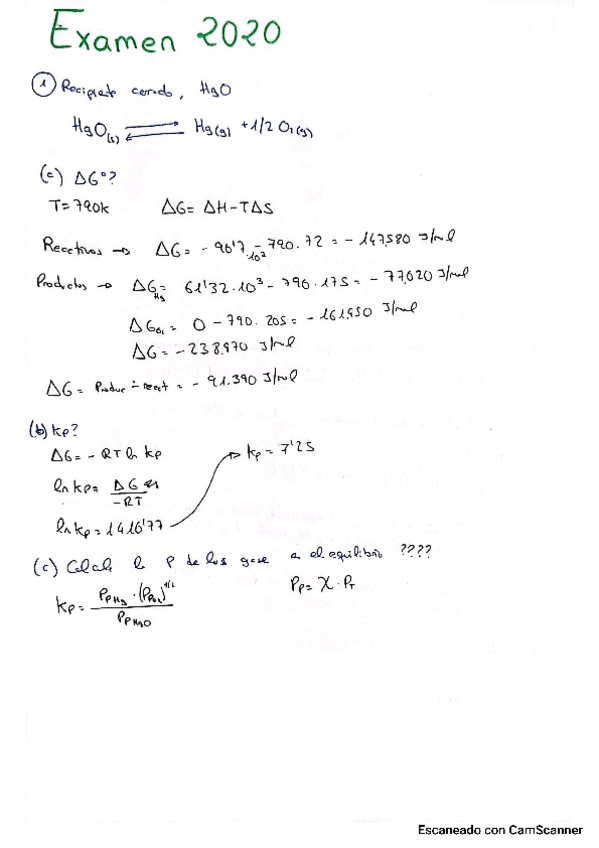 Examen 2020
① Recipiente cerrado, HgO
HgO(s) ⇌ Hg(g) + 1/2 O₂(g)
(c) ΔG°?
T=790k ΔG= ΔH-TΔS
Reactivos → ΔG= -90'7·10³ -790·72 = -147580 J/mol
Productos → ΔG Hg = 61'32·10³ - 790·175 = -77020 J/mol
ΔG O₂ = 0 - 790· 205 = -161950 J/mol
ΔG= -238970 J/mol
ΔG= Produc - react = -91.390 J/mol
(b) kp?
ΔG= -RT ln kp → kp= 7'25
ln kp= ΔG / -RT
ln kp= 1416'77
(c) Calcula la P de los gase a el equilibrio ????
kp= P pHg · (P pO₂)^1/2 / P pHgO Pp= X · PT
Escaneado con CamScanner